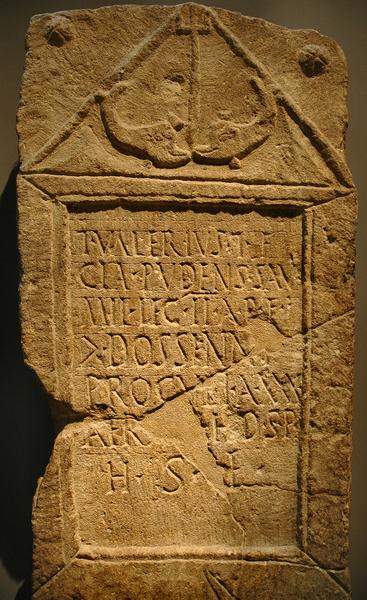 T·VALERIVS·T·F
CLA·PVDENS·SAV
MIL·LEG·II·A·P·F·
>·DOSSENNI
PROCV A·XXX
AER I·D·S·P
H·S·E